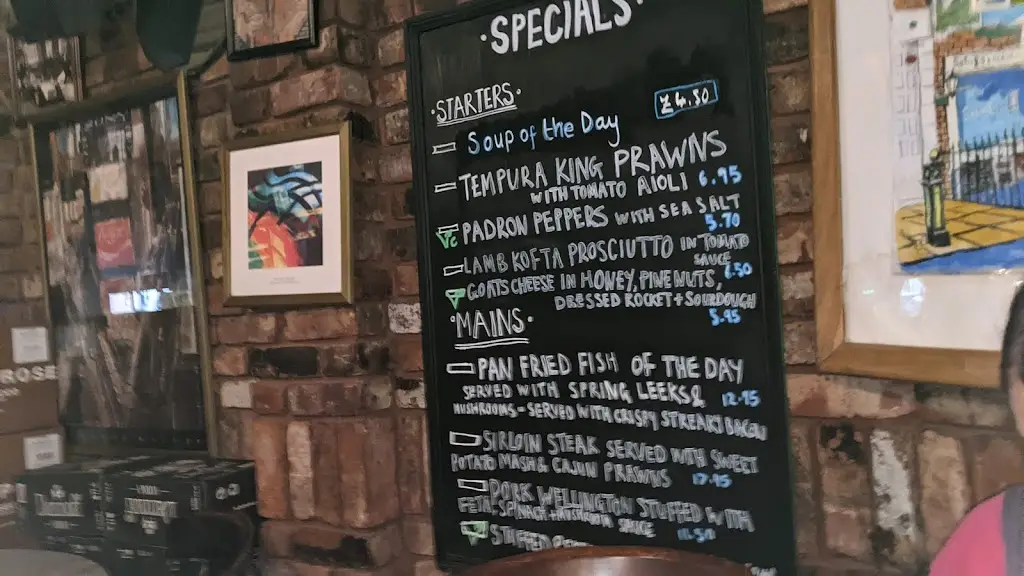 ·SPECIALS·
·STARTERS·
Soup of the Day £4.50
TEMPURA KING PRAWNS
WITH TOMATO AIOLI 6.95
V PADRON PEPPERS WITH SEA SALT
5.70
LAMB KOFTA PROSCIUTTO IN TOMATO
SAUCE 6.50
V GOATS CHEESE IN HONEY, PINE NUTS,
DRESSED ROCKET + SOURDOUGH
5.95
·MAINS·
PAN FRIED FISH OF THE DAY
SERVED WITH SPRING LEEKS & 12.95
MUSHROOMS - SERVED WITH CRISPY STREAKY BACON
SIRLOIN STEAK SERVED WITH SWEET
POTATO MASH & CAJUN PRAWNS 17.95
PORK WELLINGTON STUFFED WITH
SAUCE
V STUFFED
ROSE